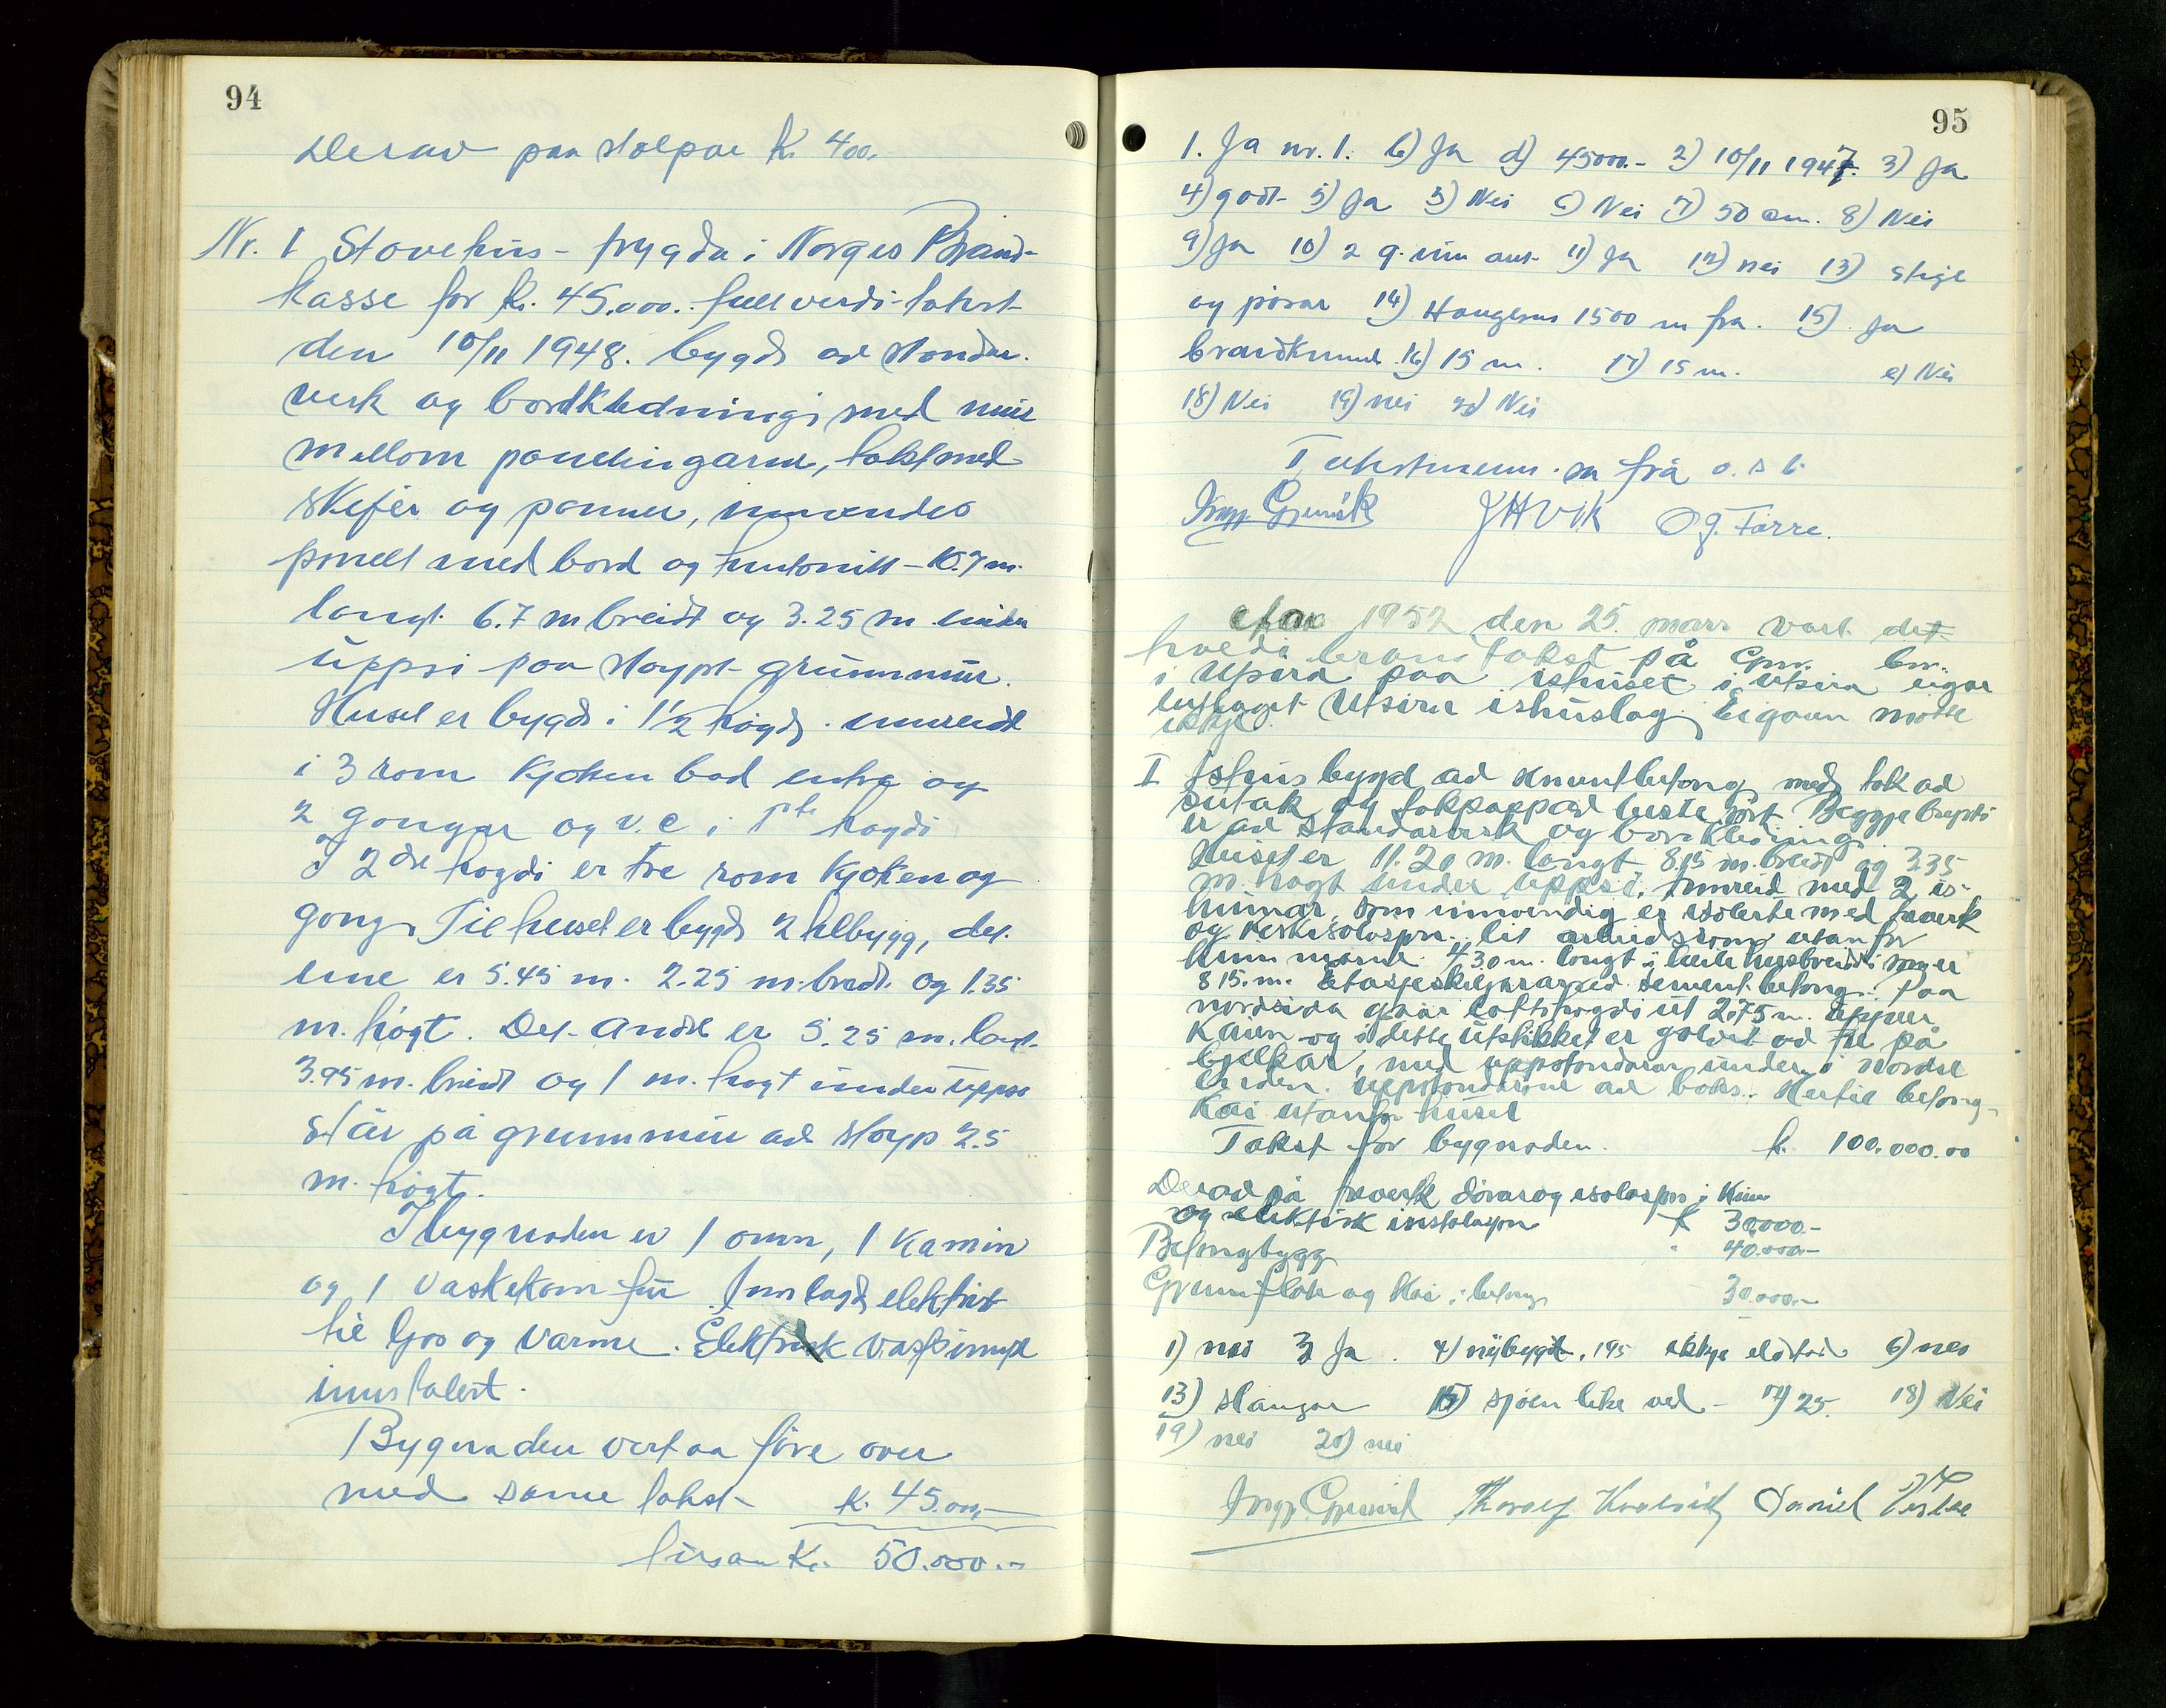 94
Derav paa stolpar k. 400.
Nr. 1 Stovehus - trygda i Norges Brand-
kasse for kr. 45.000.- full verdi - takst
den 10/11 1948. bygd av stendar.
verk og bordkledning med mur
mellom panelingarne, tak med
skifer og panner, innvendes
panelt med bord og huntonitt - 10.7 m.
langt. 6.7 m breidt og 3.25 m under
uppsi paa støypt grunnmur.
Huset er bygd i 1½ høgd. innreidt
i 3 rom kjøken bad entre og
2 gongar og v.c i 1ste høgdi
I 2dre høgdi er tre rom kjøken og
gong. Til huset er bygd 2 tilbygg, det
eine er 5.45 m. 2.25 m. breidt og 1.35
m. høgt. Det andre er 5.25 m. langt
3.95 m. breidt og 1 m. høgt under uppsi
står på grunnmur av støyp 2.5
m. høgt.
I bygnaden er 1 omn, 1 kamin
og 1 vaskekomfur Innlagd elektrisk
til ljos og varme. Elektrisk
innstalert.
Bygnaden vert aa føre over
med same takst k. 45.000,-
kr. 50.000.-
95
1. Ja nr. 1. b) Ja d) 45000.- 2) 10/11 1947. 3) Ja
4) godt 5) Ja 5) Nei c) Nei 7) 50 cm. 8) Nei
9) Ja 10) 2 q. 11) Ja 12) nei 13) stige
og pøsar 14) Haugesun 1500 m fra. 15) Ja
16) 15 m. 17) 15 m. e) Nei
18) Nei 19) nei 20) Nei
Takstmenn. frå o. s b.
JHVik O.G. Tarre.
1952 den 25. mars vart det
takst på Gnr. bnr.
i Utsira paa ishuset i Utsira eigar
Utsira ishuslag. Eigaren møtte
ikkje.
I Ishus bygd av sementbetong med tak av
sutak og takpapp av beste sort. Beggje
er av standarverk og bordkledning.
Huset er 11.20 m. langt 8.15 m. breidt og 3.35
m. høgt under uppsi. Innreid med 2 is-
som innvendig er isolerte med
arbeidsrom utanfor
4.30 m. langt i heile husbreiddi som er
8 15. m. sement betong. Paa
nordsida gaar loftshøgdi ut 2.75 m. uppver
Kaien og i dette utstikket er golvet av tre på
bjelkar, med uppstandarar under i nordre
Hertil betong-
Kai utanfor huset
Takst for bygnaden k. 100.000.00
Derav på treverk dørar og isolasjon i
og elektrisk instalasjon k 30000.-
Betongbygg " 40.000.-
Grunnflate og Kai i betong 30.000.-
1) nei 3 Ja. 4) nybygdt. 195 ikkje eldstad 6) nei
13) slangar 15) sjøen like ved - 17) 25. 18) Nei
19) nei 20) nei
Daniel